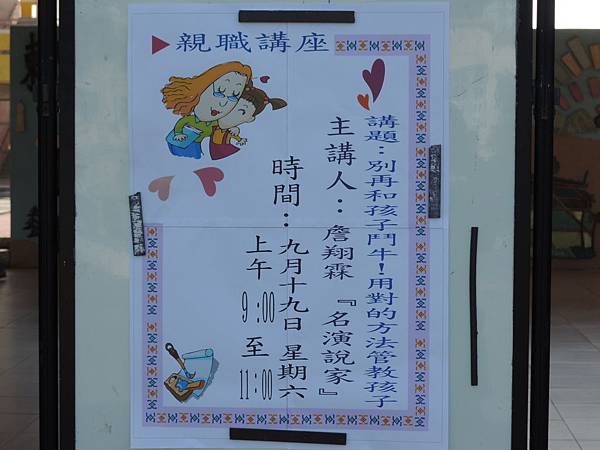 親職講座
講題：別再和孩子鬥牛！用對的方法管教孩子
主講人：詹翔霖『名演說家』
時間：九月十九日 星期六
上午9：00至11：00